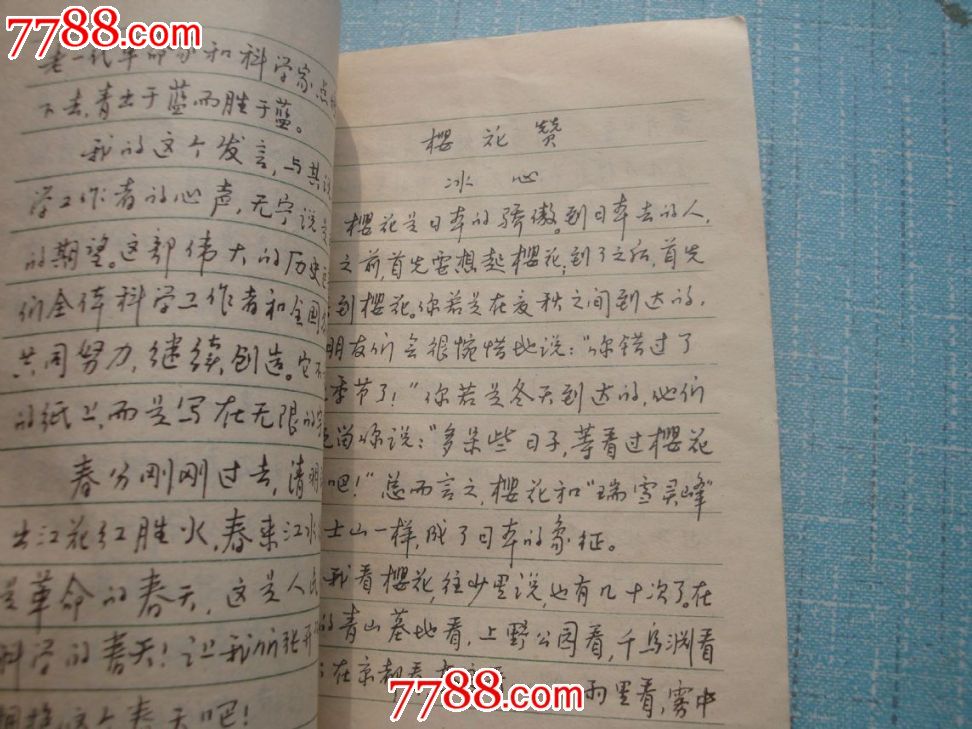 7788.com
7788.com
老一代革命家和科学家点
下去,青出于蓝而胜于蓝。
我的这个发言,与其说
学工作者的心声,无宁说是
的期望。这部伟大的历史
们全体科学工作者和全国
共同努力,继续创造。它不
的纸上,而是写在无限的宇
春分刚刚过去,清明
出江花红胜火,春来江水
是革命的春天,这是人民
科学的春天!让我们张开
拥抱这个春天吧!
樱花赞
冰心
樱花是日本的骄傲。到日本去的人,
之前,首先要想起樱花;到了之后,首先
到樱花。你若是在夏秋之间到达的,
朋友们会很惋惜地说:“你错过了
季节了!”你若是冬天到达的,他们
留你说:“多呆些日子,等看过樱花
吧!”总而言之,樱花和“瑞雪灵峰”
士山一样,成了日本的象征。
我看樱花,往少里说,也有几十次了。在
的青山墓地看,上野公园看,千鸟渊看
在京都看
雨里看,雾中
7788.com